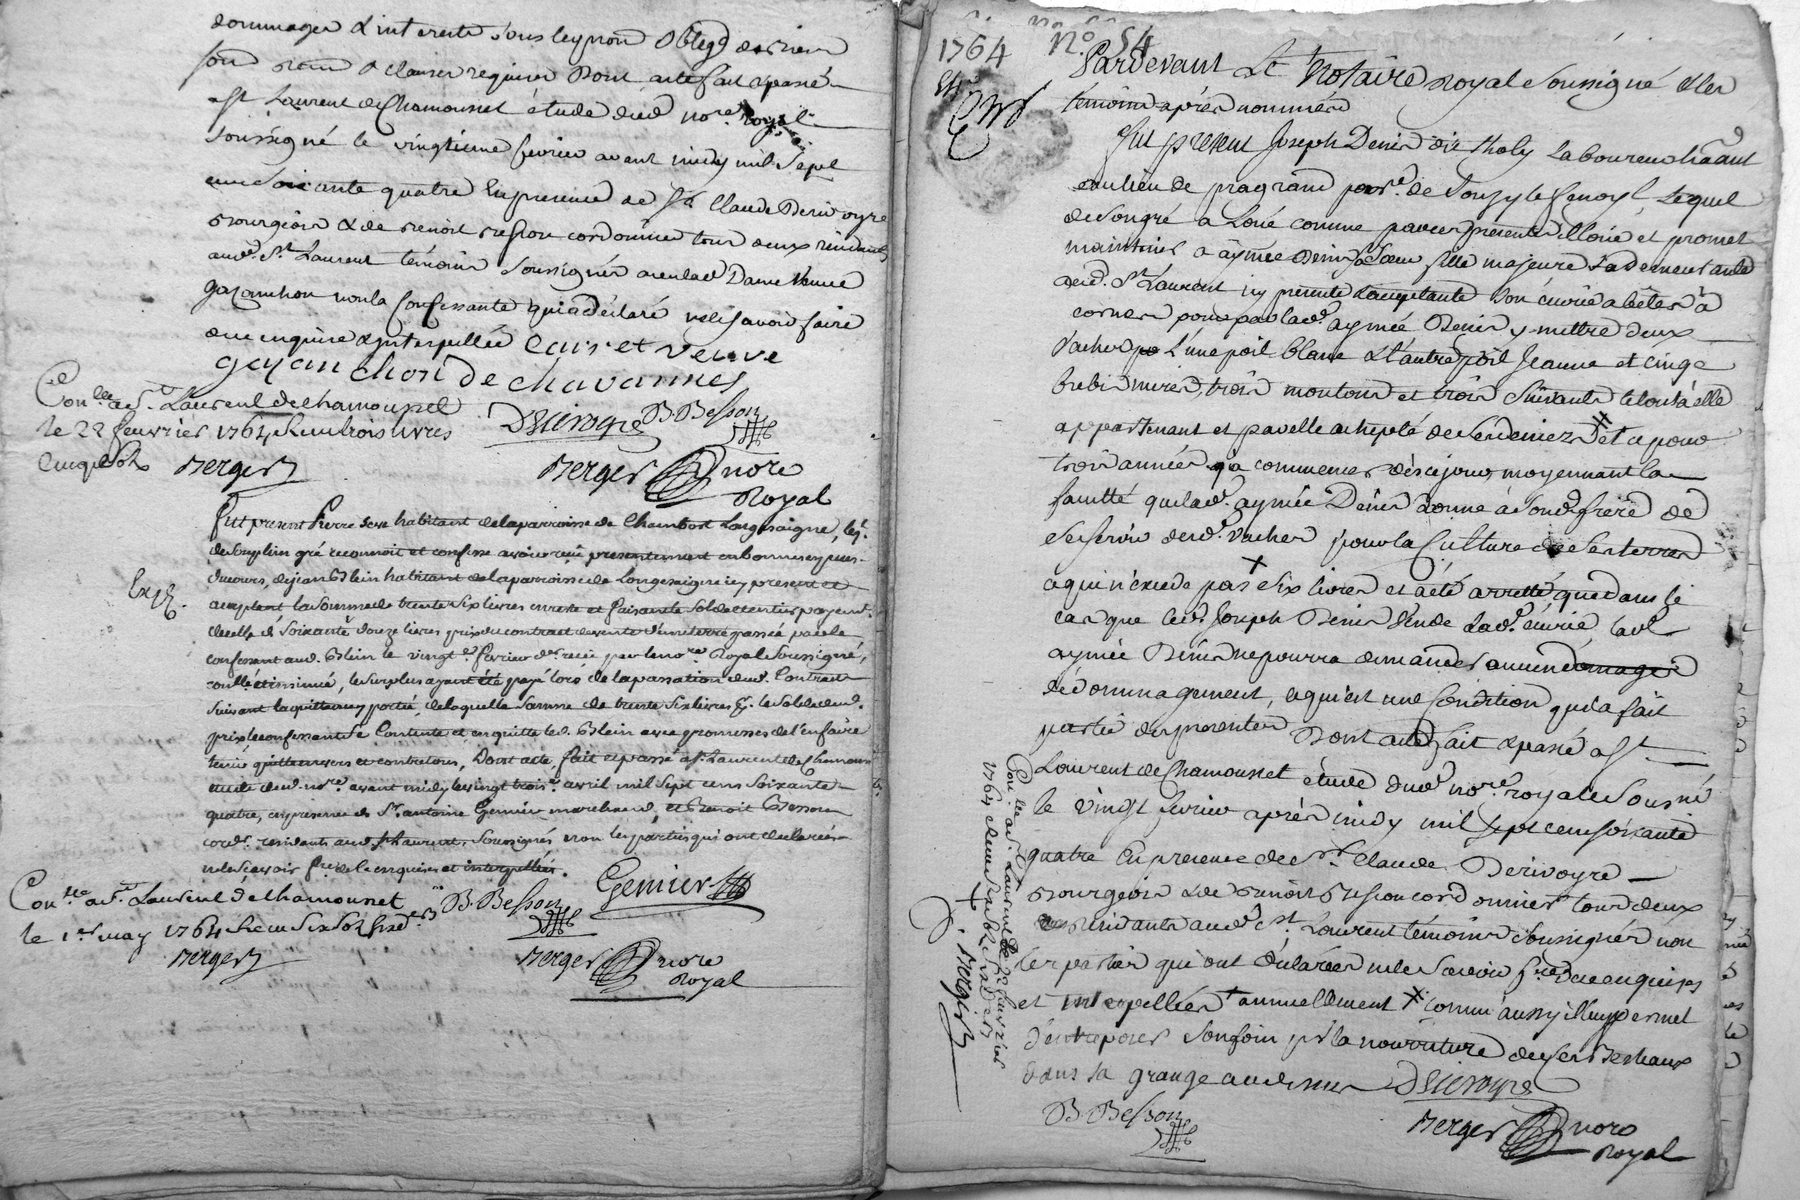 dommages & interests sous les peines obligd
fond et clauses requises Dont acte fait & passé
a St. Laurent de Chamousset étude dud. nore. royal
soussigné le vingtieme fevrier avant midy mil sept
cens soixante quatre En presence de Sr. Claude Derivoyre
Bourgeois & de Benoit Besson cordonnier tous deux residents
aud. St. Laurent témoins soussignés avec lad. Dame veuve
gayanchon non la confessante qui a déclaré ne le savoir faire
de ce enquise & interpellée Caire et veuve
gayan chon de chavannes
Conllé a St. Laurent de Chamousset
le 22 feuvrier 1764 Recu trois livres
Cinq sols Berger
Derivoyre B. Besson
Berger nore
Royal
Fut present Pierre habitant de la parroisse de Chambost Longesaigne, leql.
de son plein gré reconnoit et confesse avoir reçu presentement en bonnes especes
du cours, de Jean Blein habitant de la parroisse de Longesaigne icy present et
Exp.
acceptant la somme de trente six livres en reste et faisante solde et entier payemt.
de celle de soixante douze livres prix du contract de vente d'une terre passée par le
confessant aud. Blein le vingt fevrier der. recu par le nore. Royal Soussigné,
conllé et insinué, le surplus ayant été payé lors de la passation dud. Contract
suivant la quittance y portée, de laquelle somme de trente six livres p. le solde dud.
prix le confessant se Contente et en quitte led. Blein avec promesses de l'en faire
tenir quitte envers et contre tous, Dont acte, fait et passé a St. Laurent de Chamousset
étude dud. nore. avant midy le vingt trois avril mil sept cens soixante
quatre, en presence de Sr. antoine Gemier marchand, et Benoit Besson
cordr. residents aud. St. Laurent, Soussignés non les parties qui ont declaré
ne le scavoir fre. de ce enquises et interpellées.
Conllé a St. Laurent de Chamousset
le 1er may 1764 Recu six sols six ders
Berger
B. Besson Gemier
Berger nore
Royal
1764 No. 54
Pardevant Le Notaire royal soussigné & les
témoins après nommés
Fut present Joseph Denis dit tholy Laboureur habitant
au lieu de pragrand parse. de Souzy le Lequel
de son gré a Loué comme par ces presentes il loue et promet
maintenir a aymée Denis sa Soeur fille majeure demeurante
aud. St. Laurent icy presente & acceptante son écurie a bêtes à
cornes pour par lad. aymée Denis y mettre deux
vaches l'une poil blanc & l'autre poil Jeaune et cinq
brebis meres, trois moutons et trois suivants le tout à elle
appartenant et par elle acheptée de ses deniers et ce pour
trois années qui commencés dès ce jour, moyennant la
faculté que lad. aymée Denis donne à sond. frère de
se servir desd. vaches pour la Culture de ses terres
a qui n'excede pas six livres et a été arretté que dans le
cas que led. Joseph Denis vende lad. écurie, lad.
aymée Denis ne pourra demander aucun
dédommagement, ce qui est une Condition qui a fait
partie des presentes Dont acte fait & passé a St.
Laurent de Chamousset étude dud. nore. royal Soussigné
le vingt fevrier après midy mil sept cens soixante
quatre En presence de Sr. Claude Derivoyre
Bourgeois & de Benoit Besson cordonnier tous deux
residents aud. St. Laurent témoins soussignés non
les parties qui ont déclarées ne le savoir fre. de ce enquises
et interpellées + annuellement comme aussy il luy permet
d'entreposer son foin pr. la nourriture de ses Bestiaux
dans la grange au dessus Derivoyre
B. Besson
Berger nore
Royal
Conllé a St. Laurent le 22 feuvrier
1764
Berger